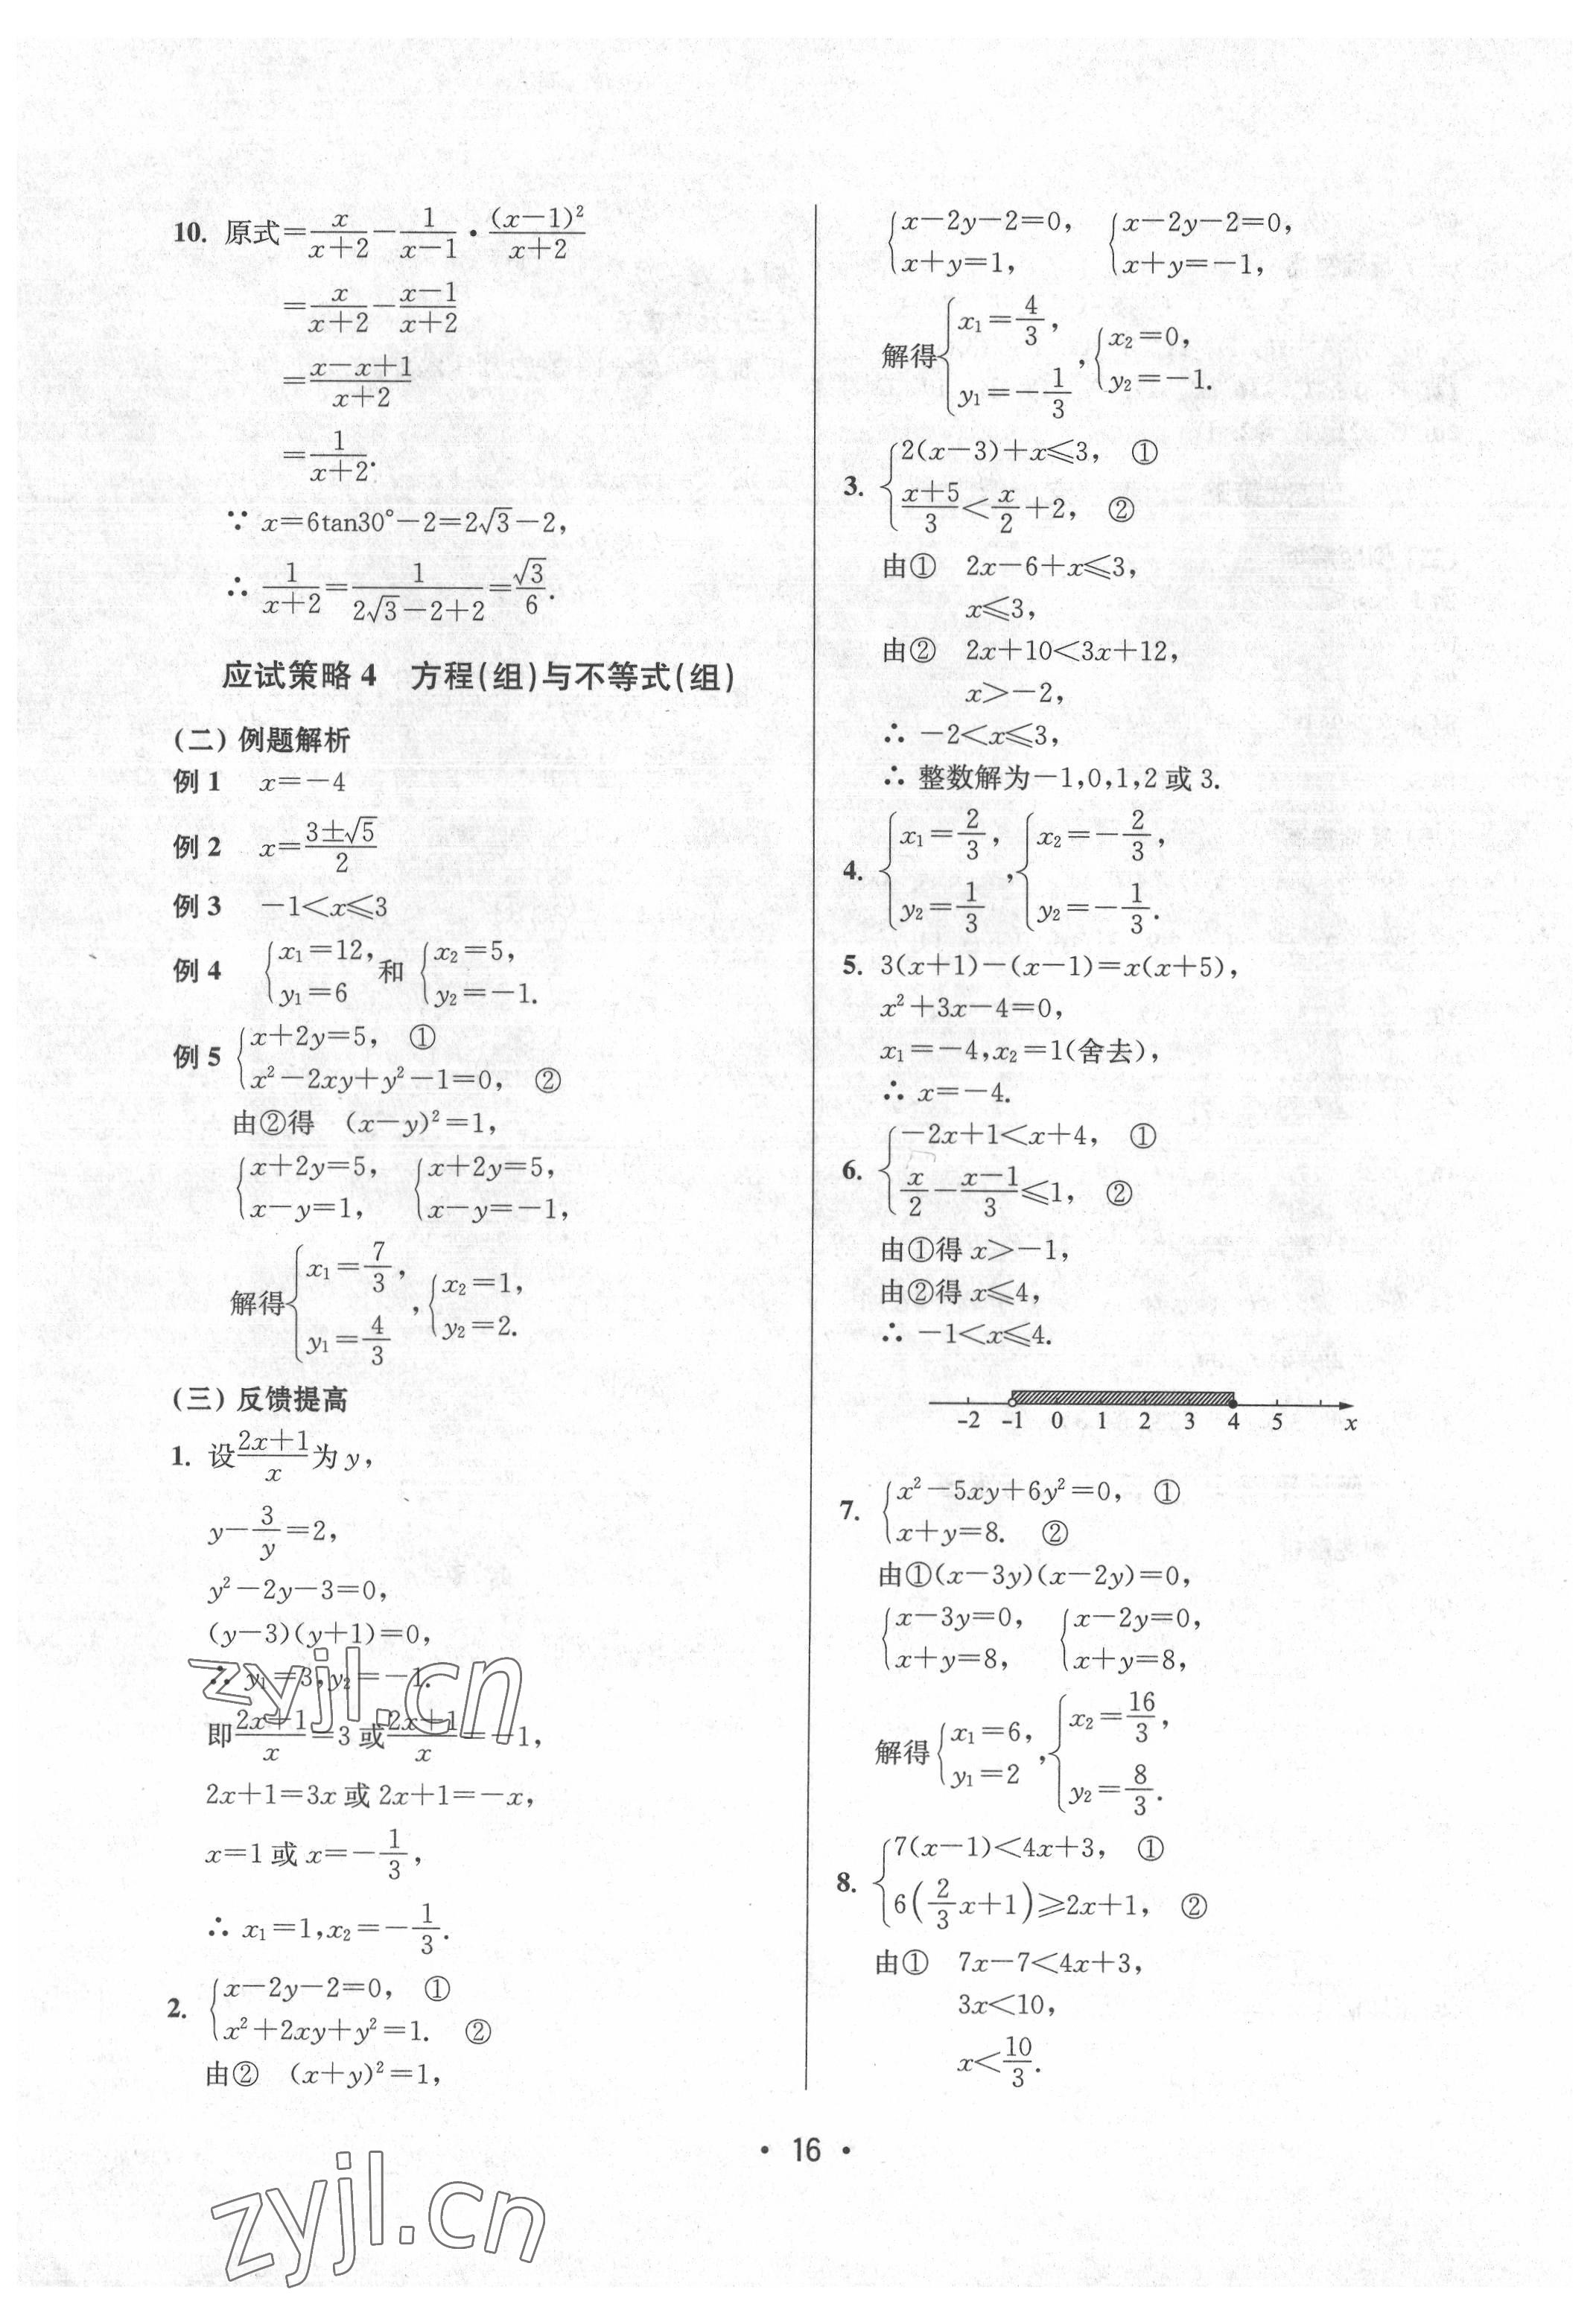 10. 原式=x/(x+2)-1/(x-1)·(x-1)²/(x+2)
=x/(x+2)-(x-1)/(x+2)
=(x-x+1)/(x+2)
=1/(x+2).
∵ x=6tan30°-2=2√3-2,
∴ 1/(x+2)=1/(2√3-2+2)=√3/6.
应试策略4 方程(组)与不等式(组)
(二) 例题解析
例1 x=-4
例2 x=(3±√5)/2
例3 -1<x≤3
例4 {x₁=12, y₁=6 和 {x₂=5, y₂=-1.
例5 {x+2y=5, ①
x²-2xy+y²-1=0, ②
由②得 (x-y)²=1,
{x+2y=5, x-y=1, {x+2y=5, x-y=-1,
解得{x₁=7/3, y₁=4/3 ,{x₂=1, y₂=2.
(三) 反馈提高
1. 设(2x+1)/x为y,
y-3/y=2,
y²-2y-3=0,
(y-3)(y+1)=0,
∴ y₁=3,y₂=-1.
即(2x+1)/x=3或(2x+1)/x=-1,
2x+1=3x或2x+1=-x,
x=1或x=-1/3,
∴ x₁=1,x₂=-1/3.
2. {x-2y-2=0, ①
x²+2xy+y²=1. ②
由② (x+y)²=1,
{x-2y-2=0, x+y=1, {x-2y-2=0, x+y=-1,
解得{x₁=4/3, y₁=-1/3 ,{x₂=0, y₂=-1.
3. {2(x-3)+x≤3, ①
(x+5)/3<x/2+2, ②
由① 2x-6+x≤3,
x≤3,
由② 2x+10<3x+12,
x>-2,
∴ -2<x≤3,
∴ 整数解为-1,0,1,2或3.
4. {x₁=2/3, y₁=1/3 ,{x₂=-2/3, y₂=-1/3.
5. 3(x+1)-(x-1)=x(x+5),
x²+3x-4=0,
x₁=-4,x₂=1(舍去),
∴ x=-4.
6. {-2x+1<x+4, ①
x/2-(x-1)/3≤1, ②
由①得x>-1,
由②得x≤4,
∴ -1<x≤4.
-2 -1 0 1 2 3 4 5 x
7. {x²-5xy+6y²=0, ①
x+y=8. ②
由①(x-3y)(x-2y)=0,
{x-3y=0, x+y=8, {x-2y=0, x+y=8,
解得{x₁=6, y₁=2 ,{x₂=16/3, y₂=8/3.
8. {7(x-1)<4x+3, ①
6(2/3x+1)≥2x+1, ②
由① 7x-7<4x+3,
3x<10,
x<10/3.
· 16 ·
zyjl.cn
zyjl.cn